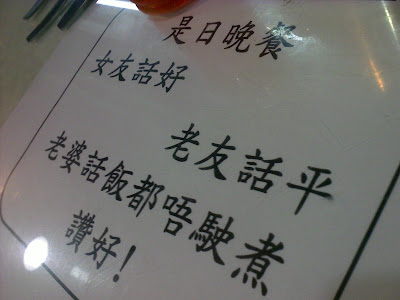 是日晚餐
女友話好
老友話平
老婆話飯都唔駛煮
讚好！